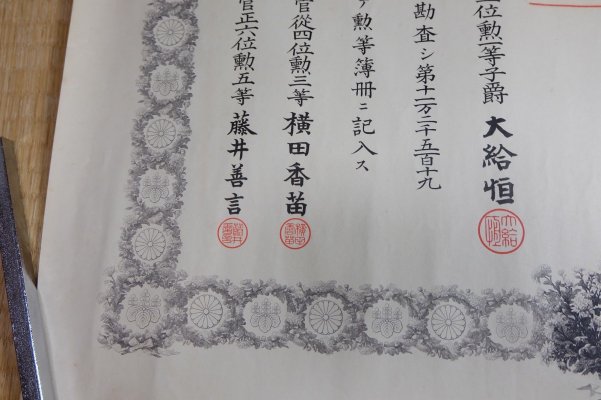 位勲一等子爵 大給恒
勘査シ第十一万二千五百十九
勲等簿冊ニ記入ス
官従四位勲三等 横田香苗
官正六位勲五等 藤井善言